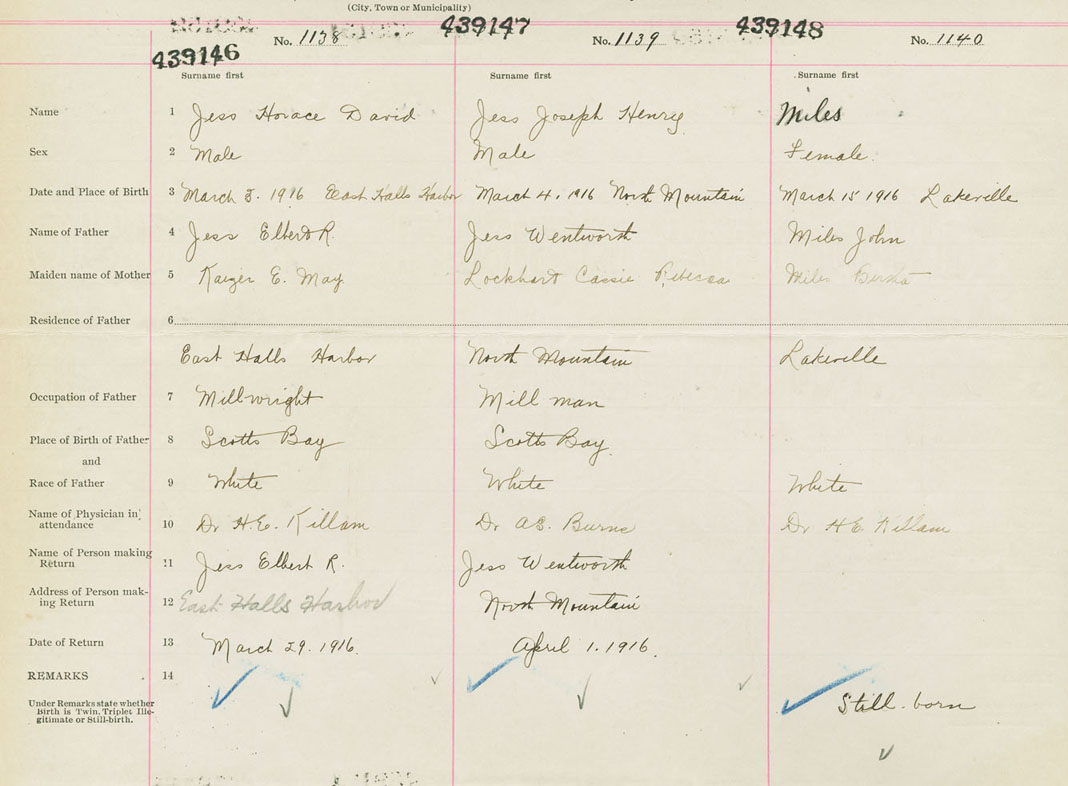 (City, Town or Municipality)
439146 No. 1138 439147 No. 1139 439148 No. 1140
Surname first Surname first Surname first
Name 1 Jess Horace David Jess Joseph Henry Miles
Sex 2 Male Male Female.
Date and Place of Birth 3 March 3. 1916 East Halls Harbor March 4. 1916 North Mountain March 15 1916 Lakeville
Name of Father 4 Jess Elbert R. Jess Wentworth Miles John
Maiden name of Mother 5 E. May Lockhart Cassie Rebecca Miles
Residence of Father 6
East Halls Harbor North Mountain Lakeville
Occupation of Father 7 Millwright Mill man
Place of Birth of Father 8 Scotts Bay Scotts Bay
and
Race of Father 9 White White White
Name of Physician in attendance 10 Dr H.E. Killam Dr A.S. Burns Dr H.E. Killam
Name of Person making Return 11 Jess Elbert R. Jess Wentworth
Address of Person mak-ing Return 12 East Halls Harbor North Mountain
Date of Return 13 March 29. 1916. April 1. 1916.
REMARKS 14
Under Remarks state whether
Birth is Twin, Triplet Ille-
gitimate or Still-birth.
Still-born